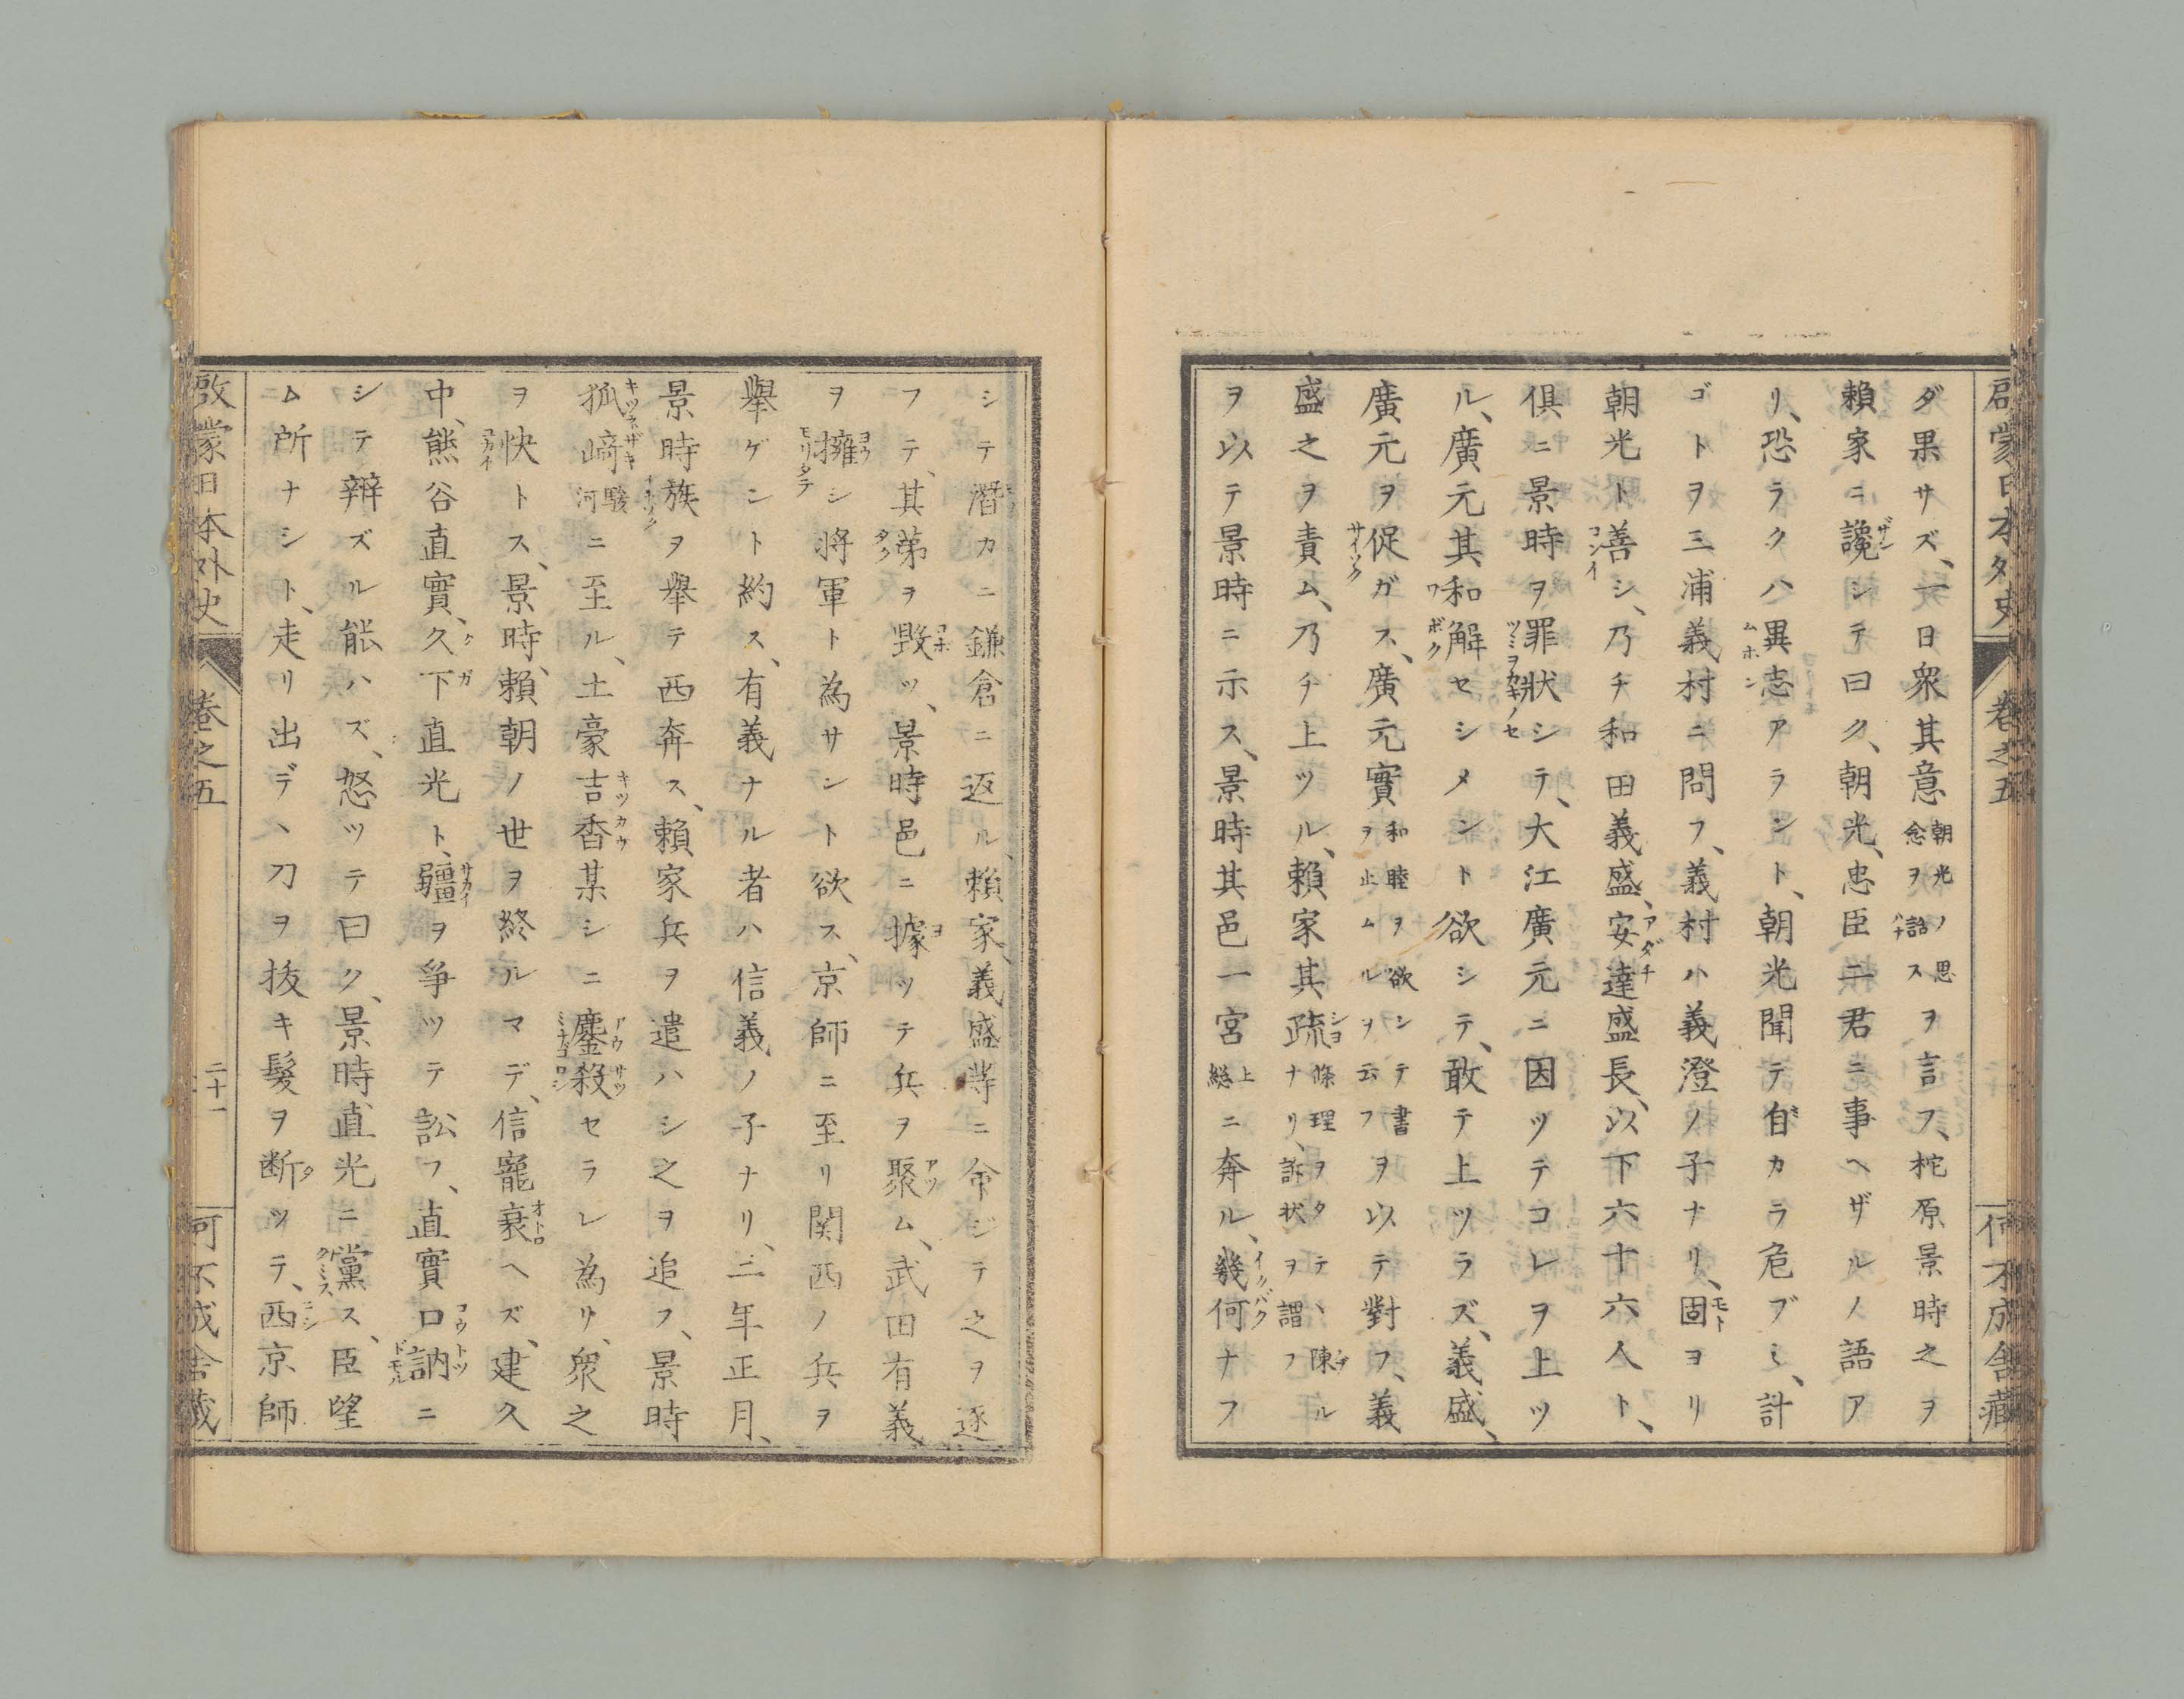 啓蒙日本外史 卷之五 何不成舎藏
ダ果サズ、一日衆其意朝光ノ思念ヲ話スヲ言フ、梶原景時之ヲ
頼家ニ讒シテ曰ク、朝光、忠臣二君ニ事ヘザルノ語ア
リ、恐ラクハ異志アラント、朝光聞テ自カラ危ブミ、計
ゴトヲ三浦義村ニ問フ、義村ハ義澄ノ子ナリ、固ヨリ
朝光ト善シ、乃チ和田義盛、安達盛長、以下六十六人ト、
倶ニ景時ヲ罪狀シテ、大江廣元ニ因ツテコレヲ上ツ
ル、廣元其和解セシメント欲シテ、敢テ上ツラズ、義盛、
廣元ヲ促ガス、廣元實和睦ヲ欲シテ書ヲ止ムルヲ云フヲ以テ對フ、義
盛之ヲ責ム、乃チ上ツル、頼家其疏條理ヲタテヽ陳ルナリ、訴状ヲ謂フ
ヲ以テ景時ニ示ス、景時其邑一宮上総ニ奔ル、幾何ナフ
シテ潛カニ鎌倉ニ返ル、頼家、義盛等ニ命ジテ之ヲ逐
フテ、其第ヲ毀ツ、景時邑ニ據ツテ兵ヲ聚ム、武田有義
ヲ擁シ将軍ト為サント欲ス、京師ニ至リ関西ノ兵ヲ
擧ゲント約ス、有義ナル者ハ信義ノ子ナリ、三年正月、
景時族ヲ擧テ西奔ス、頼家兵ヲ遣ハシ之ヲ追フ、景時
狐﨑駿河ニ至ル、土豪吉香某シニ鏖殺セラレ為リ、衆之
ヲ快トス、景時、頼朝ノ世ヲ終ルマデ、信寵衰ヘズ、建久
中、熊谷直實、久下直光ト、疆ヲ爭ツテ訟フ、直實口訥ニ
シテ辨ズル能ハズ、怒ツテ曰ク、景時直光ニ黨ス、臣望
ム所ナシト、走リ出デヽ刀ヲ抜キ髮ヲ断ツテ、西京師
啓蒙日本外史 卷之五 二十一 何不成舎藏